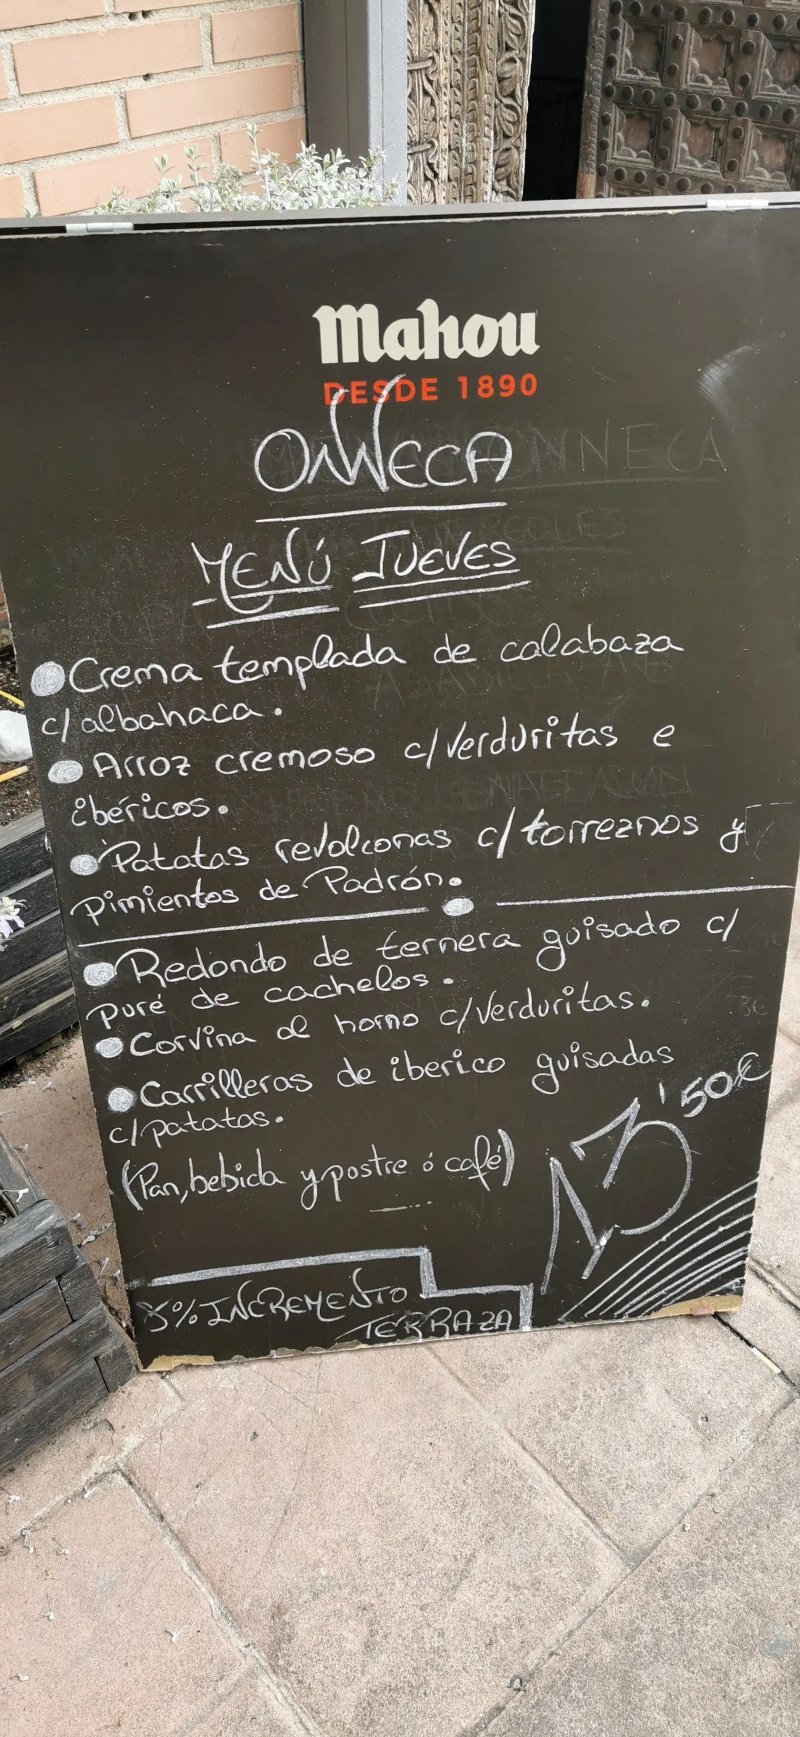 Mahou
DESDE 1890
ONNECA
MENÚ JUEVES
Crema templada de calabaza
c/albahaca.
Arroz cremoso c/verduritas e
ibéricos.
Patatas revolconas c/torreznos y
pimientos de Padrón.
Redondo de ternera guisado c/
puré de cachelos.
Corvina al horno c/verduritas.
Carrilleras de iberico guisadas
c/patatas.
(Pan, bebida y postre ó café)
13'50€
5% INCREMENTO
TERRAZA